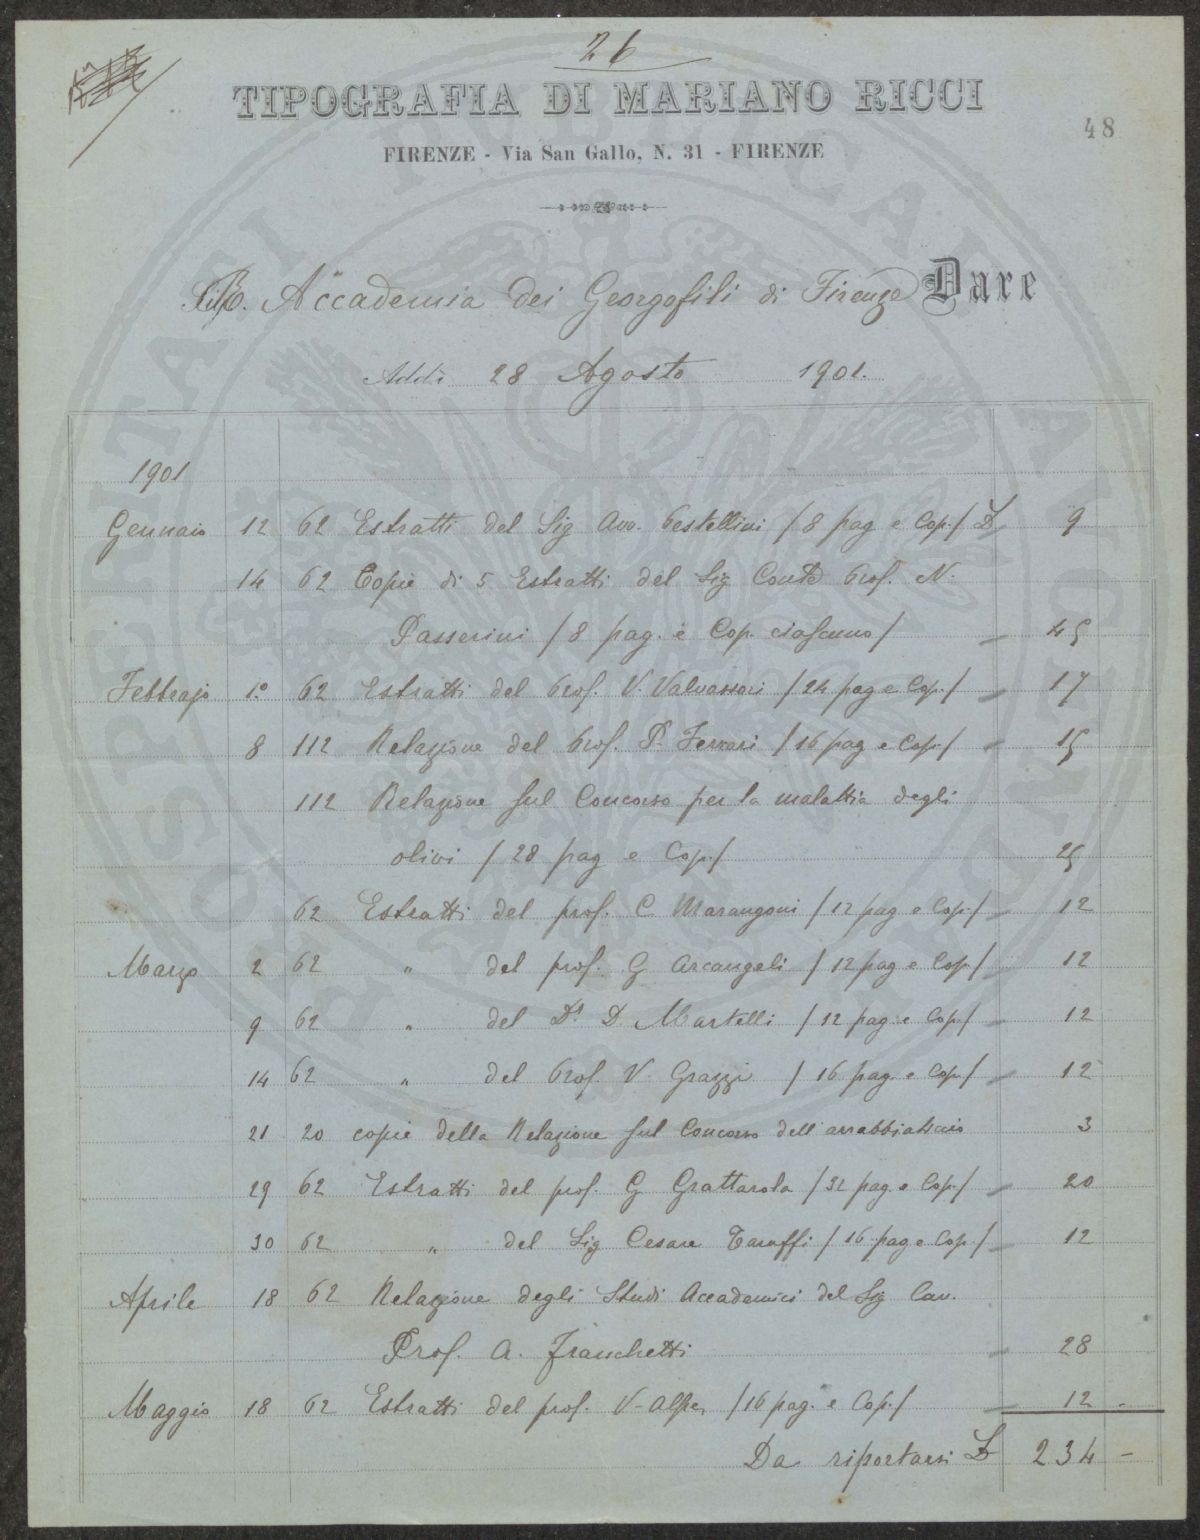 26
TIPOGRAFIA DI MARIANO RICCI
48
FIRENZE - Via San Gallo, N. 31 - FIRENZE
R. Accademia dei Georgofili di Firenze Dare
Addì 28 Agosto 1901.
1901
Gennaio 12 62 Estratti del Sig Avv. Cestellini / 8 pag e Cop./ L 9
14 62 Copie di 5 Estratti del Sig Conte Prof. N.
Passerini / 8 pag. e Cop. ciascuno / 45
Febbrajo 1.° 62 Estratti del Prof. V. Valvassori / 24 pag e Cop./ 17
8 112 Relazione del Prof. P. Ferrari / 16 pag e Cop./ 15
112 Relazione sul Concorso per la malattia degli
olivi / 28 pag e Cop./ 25
62 Estratti del prof. C Marangoni / 12 pag e Cop./ 12
Marzo 2 62 " del prof. G Arcangeli / 12 pag e Cop./ 12
9 62 " del Dr D. Martelli / 12 pag. e Cop./ 12
14 62 " del Prof. V. Grazzi / 16 pag. e Cop./ 12
21 20 copie della Relazione sul Concorso dell'arrabbiaticcio 3
29 62 Estratti del prof. G Grattarola / 32 pag. e Cop./ 20
30 62 " del Sig Cesare Taruffi / 16 pag e Cop./ 12
Aprile 18 62 Relazione degli Studi Accademici del Sig Cav.
Prof. A. Franchetti 28
Maggio 18 62 Estratti del prof. V. Alpe, / 16 pag. e Cop./ 12 -
Da riportarsi L 234 -
PROSPERITATI PVBLICAE AVGENDAE